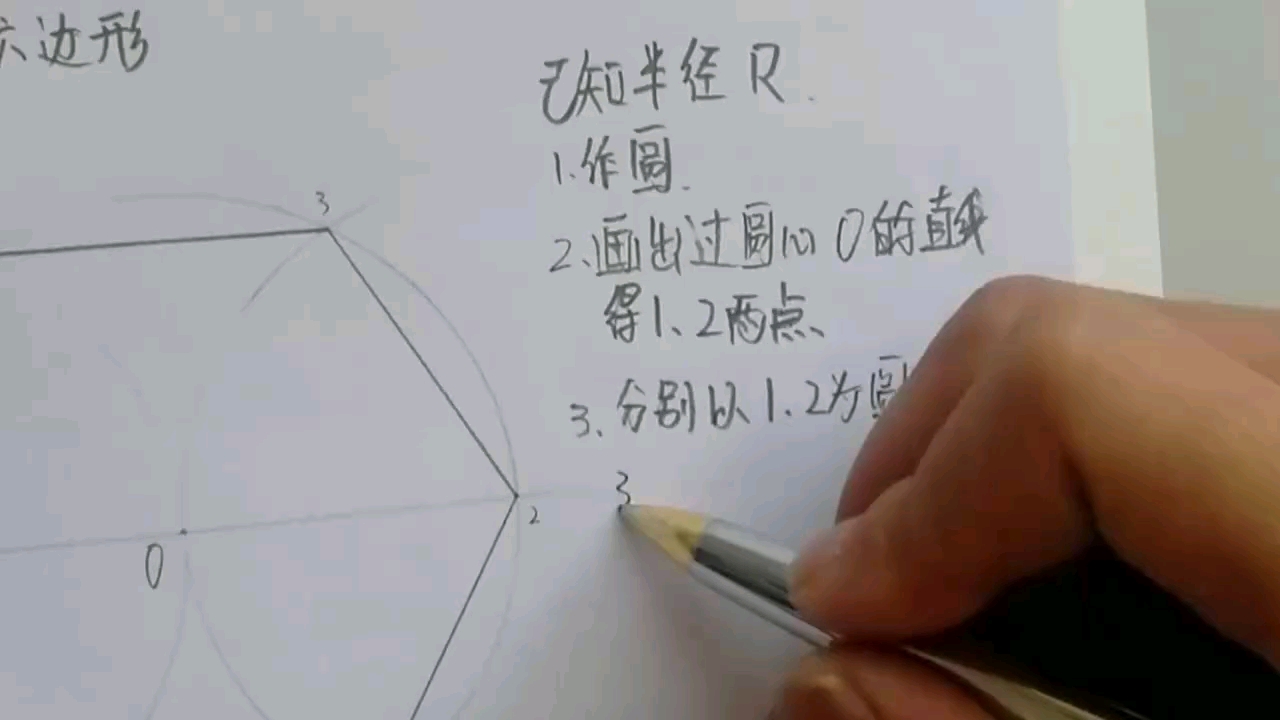 六边形
已知半径 R.
1.作圆.
2.画出过圆心O的直线
得1、2两点、
3.分别以1.2为圆
3
3
2
O